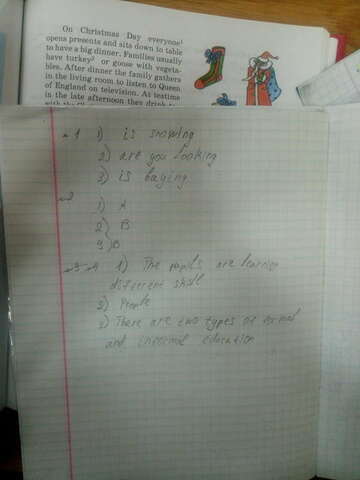 On Christmas Day everyone¹
opens presents and sits down to table
to have a big dinner. Families usually
have turkey² or goose with vegeta-
bles. After dinner the family gathers
in the living room to listen to Queen
of England on television. At teatime
in the late afternoon they drink
№1 1) is snowing
2) are you looking
3) is buying
№2
1) A
2) B
3) B
№3 №4 1) The pupils are learning
different skill
2) People
3) There are two types of formal
and informal education